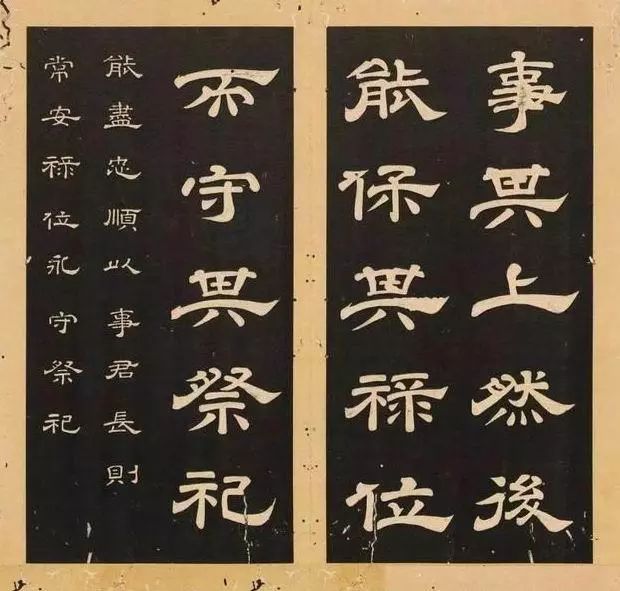 事其上然後
能保其祿位
而守其祭祀
能盡忠順以事君長則
常安祿位永守祭祀